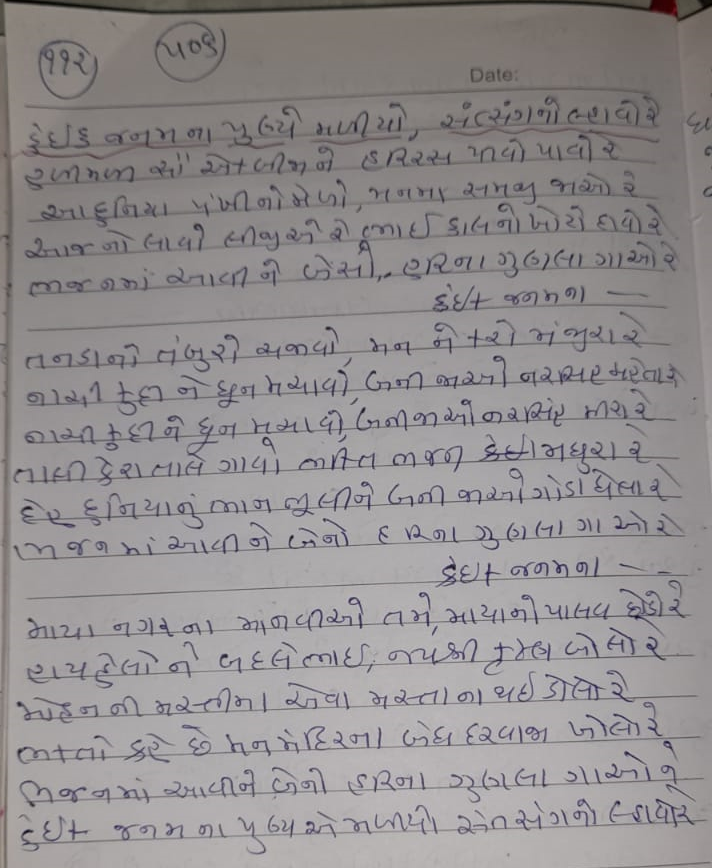 ૧૧૨ ૫૦૬
Date:
કંઇક જનમ ના પુણ્યે મળીયો, સંત્સંગનો લ્હાવો રે
હળીમળી સૌ એકબીજાને હરિરસ પાવો પાવો રે
આ દુનિયા પંખીનો મેળો, મનમા સમજી જાઓ રે
આજ નો લાવો લીજીએ રે ભાઇ કાલનો ખોટો દાવો રે
ભજનમાં આવીને બેસી, હરિના ગુણલા ગાઓ રે
કંઇક જનમના —
તનડાનો તંબુરો સજાવો, મન ને કરો મંજીરા રે
નાચી કુદી ને ધુન મચાવો, બની જાઓ નરસિંહ મહેતા રે
નાચી કુદીને ધુન મચાવો, બની જાઓ નરસિંહ મીરા રે
તાલી કેરા તાલે ગાવો ભક્તિ ભજન મધુરા રે
દેહ દુનિયાનું ભાન ભૂલીને બની જાઓ ગાંડા ઘેલા રે
ભજનમાં આવીને બેસો હરિના ગુણલા ગાઓ રે
કંઇક જનમના — —
માયા નગરના માનવીઓ તમે, માયાનો પાલવ છોડો રે
હાય હેલો ને બદલે ભાઇ, જયશ્રી કૃષ્ણ બોલો રે
મોહન ની મસ્તીમા એવા મસ્તાના થઇ ડોલો રે
ભક્તો કહે છે મનમંદિરના બંધ દરવાજા ખોલો રે
ભજનમાં આવીને બેસો હરિના ગુણલા ગાઓ ને
કંઇક જનમ ના પુણ્ય એ મળીયો સંતસંગનો લ્હાવો રે